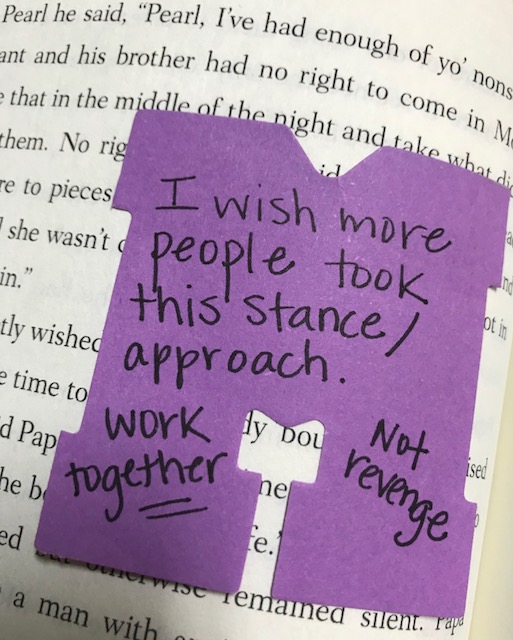 Pearl he said, “Pearl, I’ve had enough of yo’ nons
ant and his brother had no right to come in M
e that in the middle of the night and take what di
them. No rig
re to pieces
I wish more
she wasn’t
people took
in.”
this stance/
ot in
tly wished
approach.
e time to
work
dy bou
Not
d Pap
together
revenge
ised
he b
ne
ed
fe.”
otherwise remained silent. Papa
a man with